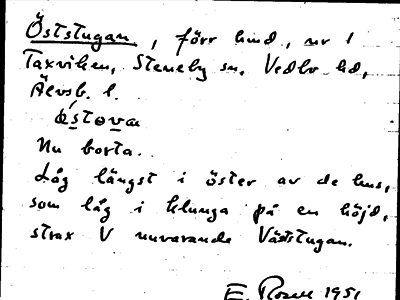 Öststugan, förr hmd, nr 1
Taxviken, Steneby sn, Vedbo hd,
Älvsb. l.
Nu borta.
Låg längst i öster av de hus,
som låg i klunga på en höjd,
strax V nuvarande Väststugan.
E. Rosell 1951